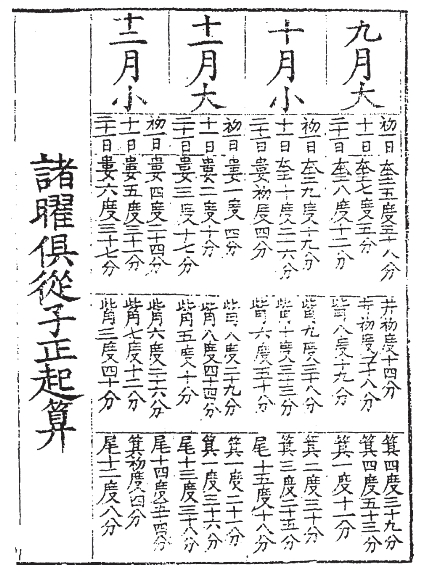 九月大
初一日 奎五度五十八分 井初度十四分 箕四度三十九分
十一日 奎七度五分 井初度二十八分 箕四度五十三分
二十一日 奎八度十二分 觜八度十九分 箕一度十一分
十月小
初一日 奎九度十九分 觜九度三十八分 箕二度三十分
十一日 奎十度二十六分 觜十度三十三分 箕三度二十五分
二十一日 婁初度四分 觜六度五十分 尾十五度十八分
十一月大
初一日 婁一度四分 觜八度二十九分 箕一度二十一分
十一日 婁二度十分 觜八度四十四分 箕一度三十六分
二十一日 婁三度十七分 觜五度十分 尾十三度三十八分
十二月小
初一日 婁四度二十四分 觜六度二十六分 尾十四度五十四分
十一日 婁五度三十一分 觜七度十二分 箕初度分
二十一日 婁六度三十七分 觜三度四十分 尾十二度八分
諸曜俱從子正起算